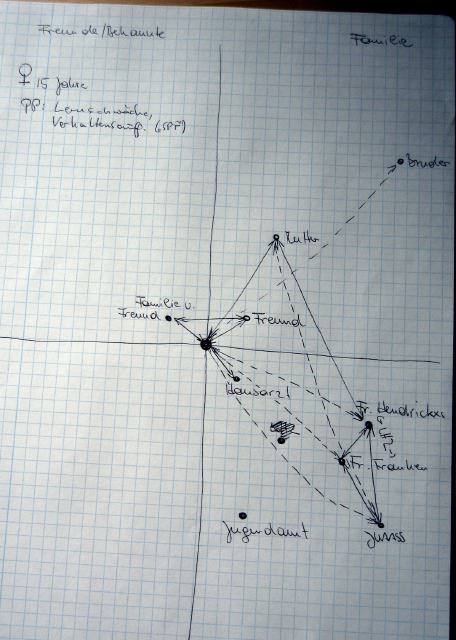 Freunde/Bekannte
Familie
♀ 15 Jahre
PP: Lernschwäche,
Verhaltensauf.
Bruder
Mutter
Familie v.
Freund
Freund
Hausarzt
Fr. Hendrickxs
Fr. Franken
Jugendamt